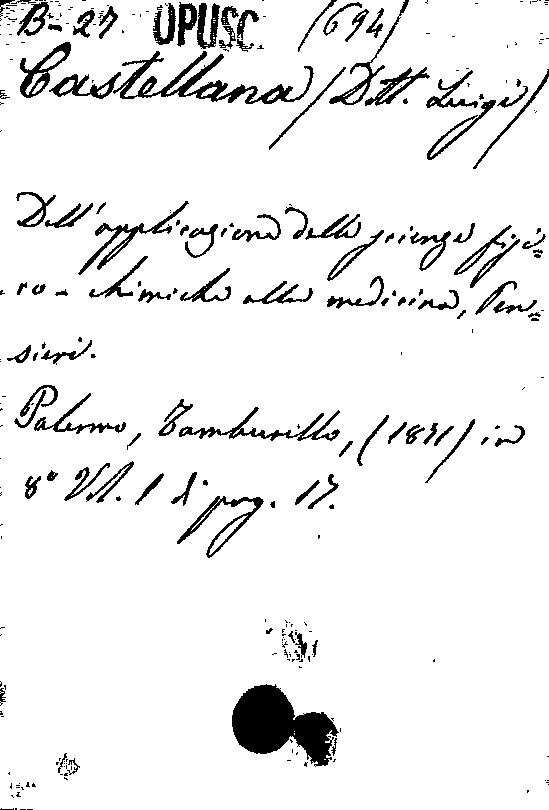 B-27 OPUSC. (694)
Castellana (Dott. Luigi)
Dell'applicazione delle scienze fisi=
co-chimiche alla medicina, Pen=
sieri.
Palermo, Tamburello, (1871) in
8° Vol. 1 di pag. 17.